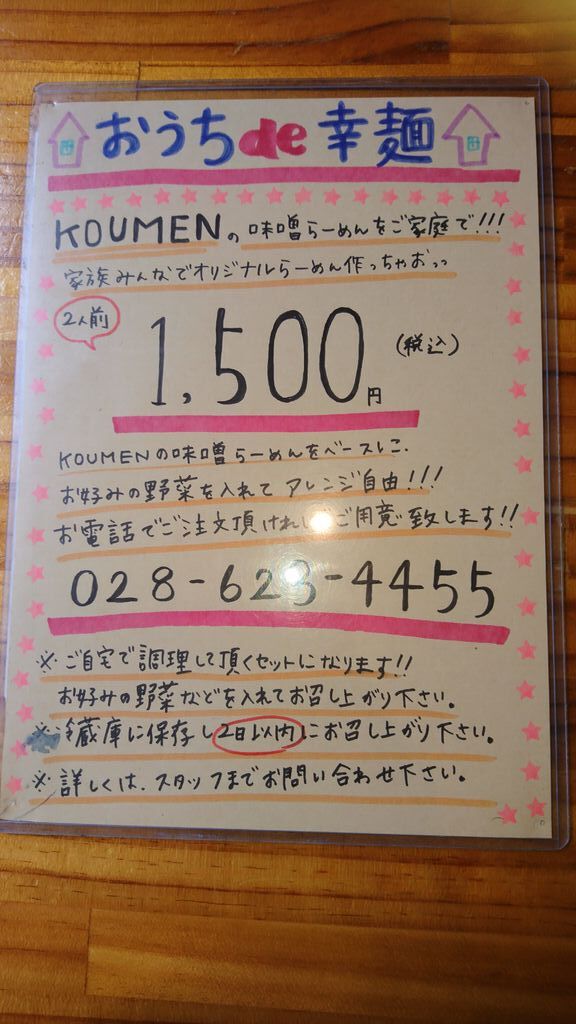 おうちde幸麺
KOUMENの味噌らーめんをご家庭で!!!
家族みんなでオリジナルらーめん作っちゃおっっ
2人前
1,500円
(税込)
KOUMENの味噌らーめんをベースに、
お好みの野菜を入れてアレンジ自由!!!
お電話でご注文頂ければご用意致します!!
028-623-4455
※ご自宅で調理して頂くセットになります!!
お好みの野菜などを入れてお召し上がり下さい。
※冷蔵庫に保存し2日以内にお召し上がり下さい。
※詳しくは、スタッフまでお問い合わせ下さい。